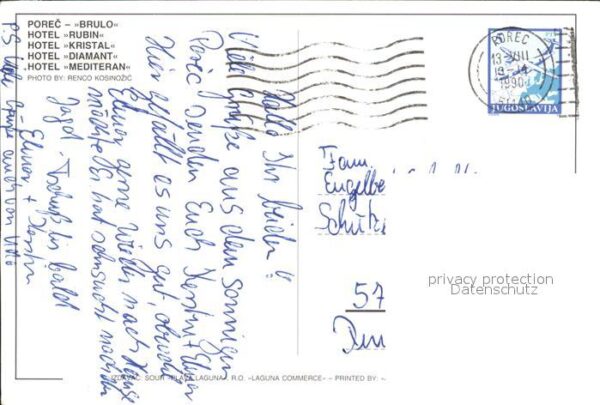 POREČ – »BRULO«
HOTEL »RUBIN«
HOTEL »KRISTAL«
HOTEL »DIAMANT«
HOTEL »MEDITERAN«
PHOTO BY: RENCO KOSINOŽIĆ
Hallo Ihr beiden!
Viele Grüße aus dem sonnigen
Poreč senden Euch Kerstin + Elmar
Hier gefällt es uns gut, obwohl
Elmar gerne wieder nach Hause
möchte. Er hat Sehnsucht nach der
Jagd. Tschüß bis bald
– Elmar + Kerstin
P.S. Viele Grüße auch von Udo
POREČ
13-VIII
1990
JUGOSLAVIJA
Fam.
Engelbe
Schütz
57
privacy protection
Datenschutz
IZDAVAČ: SOUR »PLAVA LAGUNA«, R.O. »LAGUNA COMMERCE« – PRINTED BY: